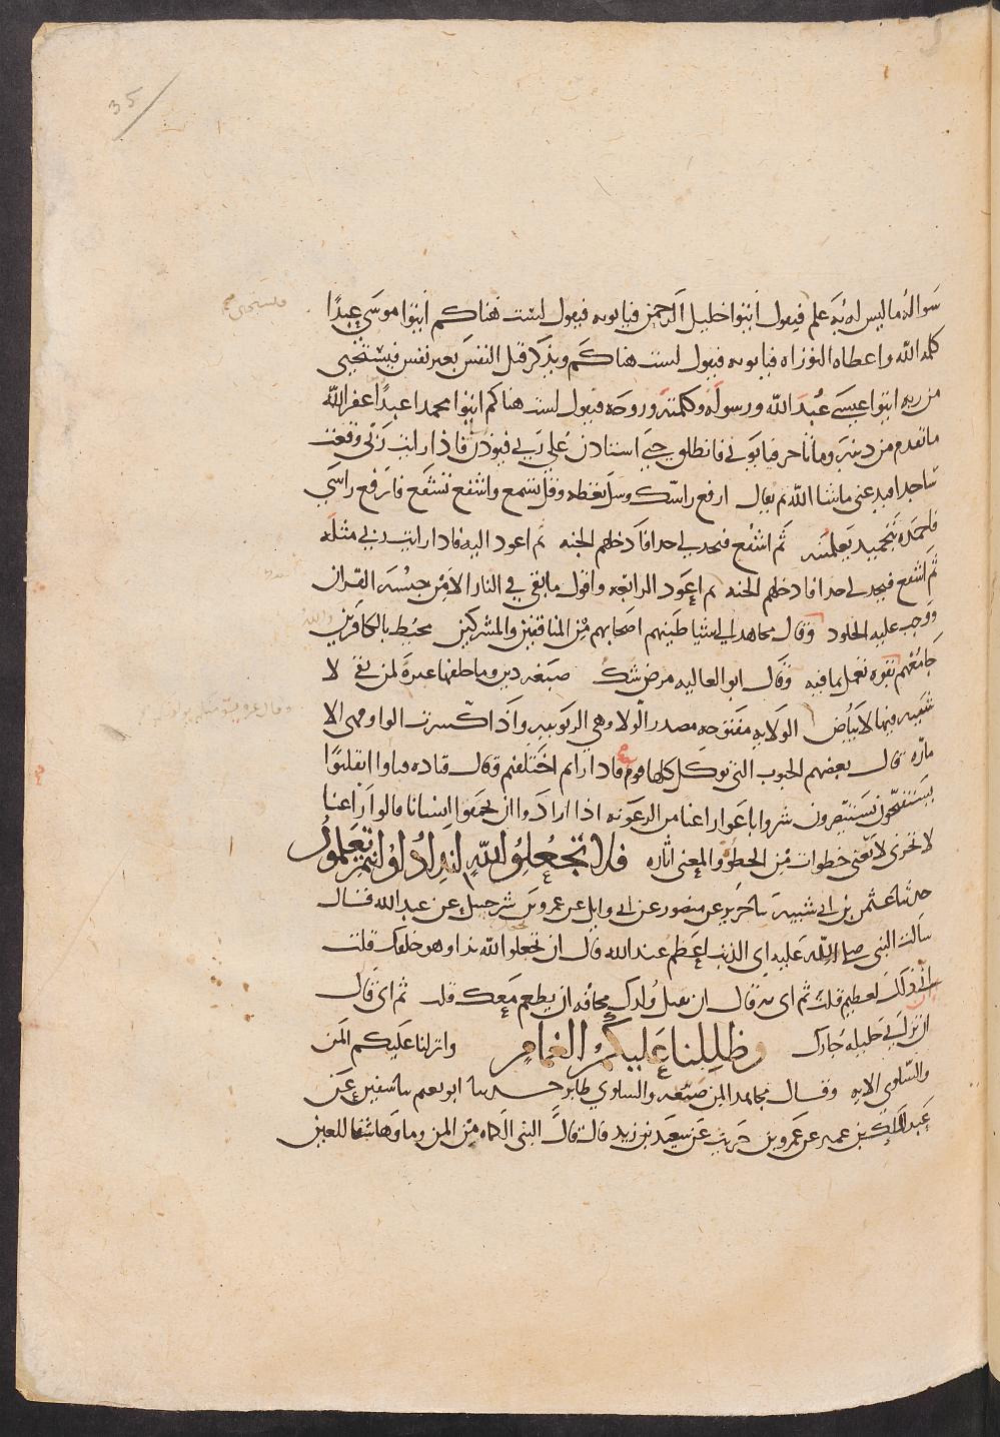 35
سواله ما ليس له به علم فيقول ائتوا خليل الرحمن فياتونه فيقول لست هناكم ائتوا موسى عبدًا
كلمه الله واعطاه التوراه فياتونه فيقول لست هناكم ويذكر قتل النفس بغير نفس فيستحيى
من ربه ايتوا عيسى عبد الله ورسوله وكلمته وروحه فيقول لست هناكم ايتوا محمدا عبدًا غفر الله
ما تقدم من ذنبه وما تاخر فياتونى فانطلق حتى استاذن على ربي فيوذن فاذا رايت ربى وقعت
ساجدا فيدعنى ما شا الله ثم يقال ارفع راسك وسل تعطه وقل تسمع واشفع تشفع فارفع راسي
فاحمده بتحميد يعلمنيه ثم اشفع فيحد لي حدا فادخلهم الجنه ثم اعود اليه فاذا رايت ربي مثله
ثم اشفع فيحد لى حدا فادخلهم الجنه ثم اعود الرابعه واقول ما بقي في النار الا من حبسه القران
ووجب عليه الخلود وقال مجاهد الى شياطينهم اصحابهم من المنافقين والمشركين محيط بالكافرين
جامعهم بقوه نعمل بما فيه وقال ابو العاليه مرض شك صبغه دين وما خلفها عبرة لمن بقى لا
شيه فيها لا بياض الولايه مفتوحه مصدر الولا وهي الربوبيه واذا كسرت الواو فهى الا
ماره قال بعضهم الحبوب التى توكل كلها فوم فاداراتم اختلفتم وقال قتاده فباوا انقلبوا
يستفتحون يستنصرون شروا باعوا راعنا من الرعونه اذا ارادوا ان يحمقوا انسانا قالوا راعنا
لا تجزى لا تغنى خطوات من الخطو والمعنى اثاره فلا تجعلوا لله اندادا وانتم تعلمون
حدثنا عثمن بن ابى شيبة نا جرير عن منصور عن ابى وايل عن عمرو بن شرحبيل عن عبد الله فقال
سالت النبى صلى الله عليه اي الذنب اعظم عند الله قال ان تجعل لله ندا وهو خلقك قلت
ان ذلك لعظيم قلت ثم اي قال ان تقتل ولدك مخافه ان يطعم معك قلت ثم اي قال
ان تزانى حليله جارك وظللنا عليكم الغمام وانزلنا عليكم المن
والسلوى الايه وقال مجاهد المن صمغه والسلوى طاير حدثنا ابو نعيم نا سفين عن
عبد الملك بن عمير عن عمرو بن حريث عن سعيد بن زيد قال قال النبى الكماه من المن وماوها شفا للعين